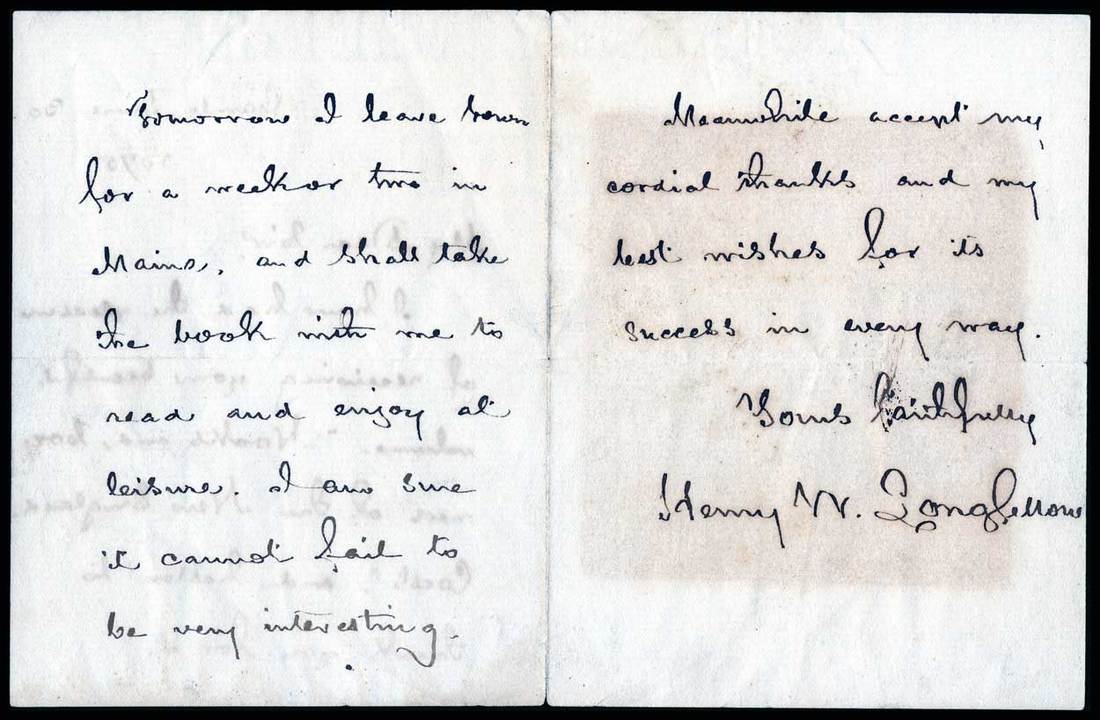 Tomorrow I leave town
for a week or two in
Maine, and shall take
the book with me to
read and enjoy at
leisure. I am sure
it cannot fail to
be very interesting.
Meanwhile accept my
cordial thanks and my
best wishes for its
success in every way.
Yours faithfully
Henry W. Longfellow